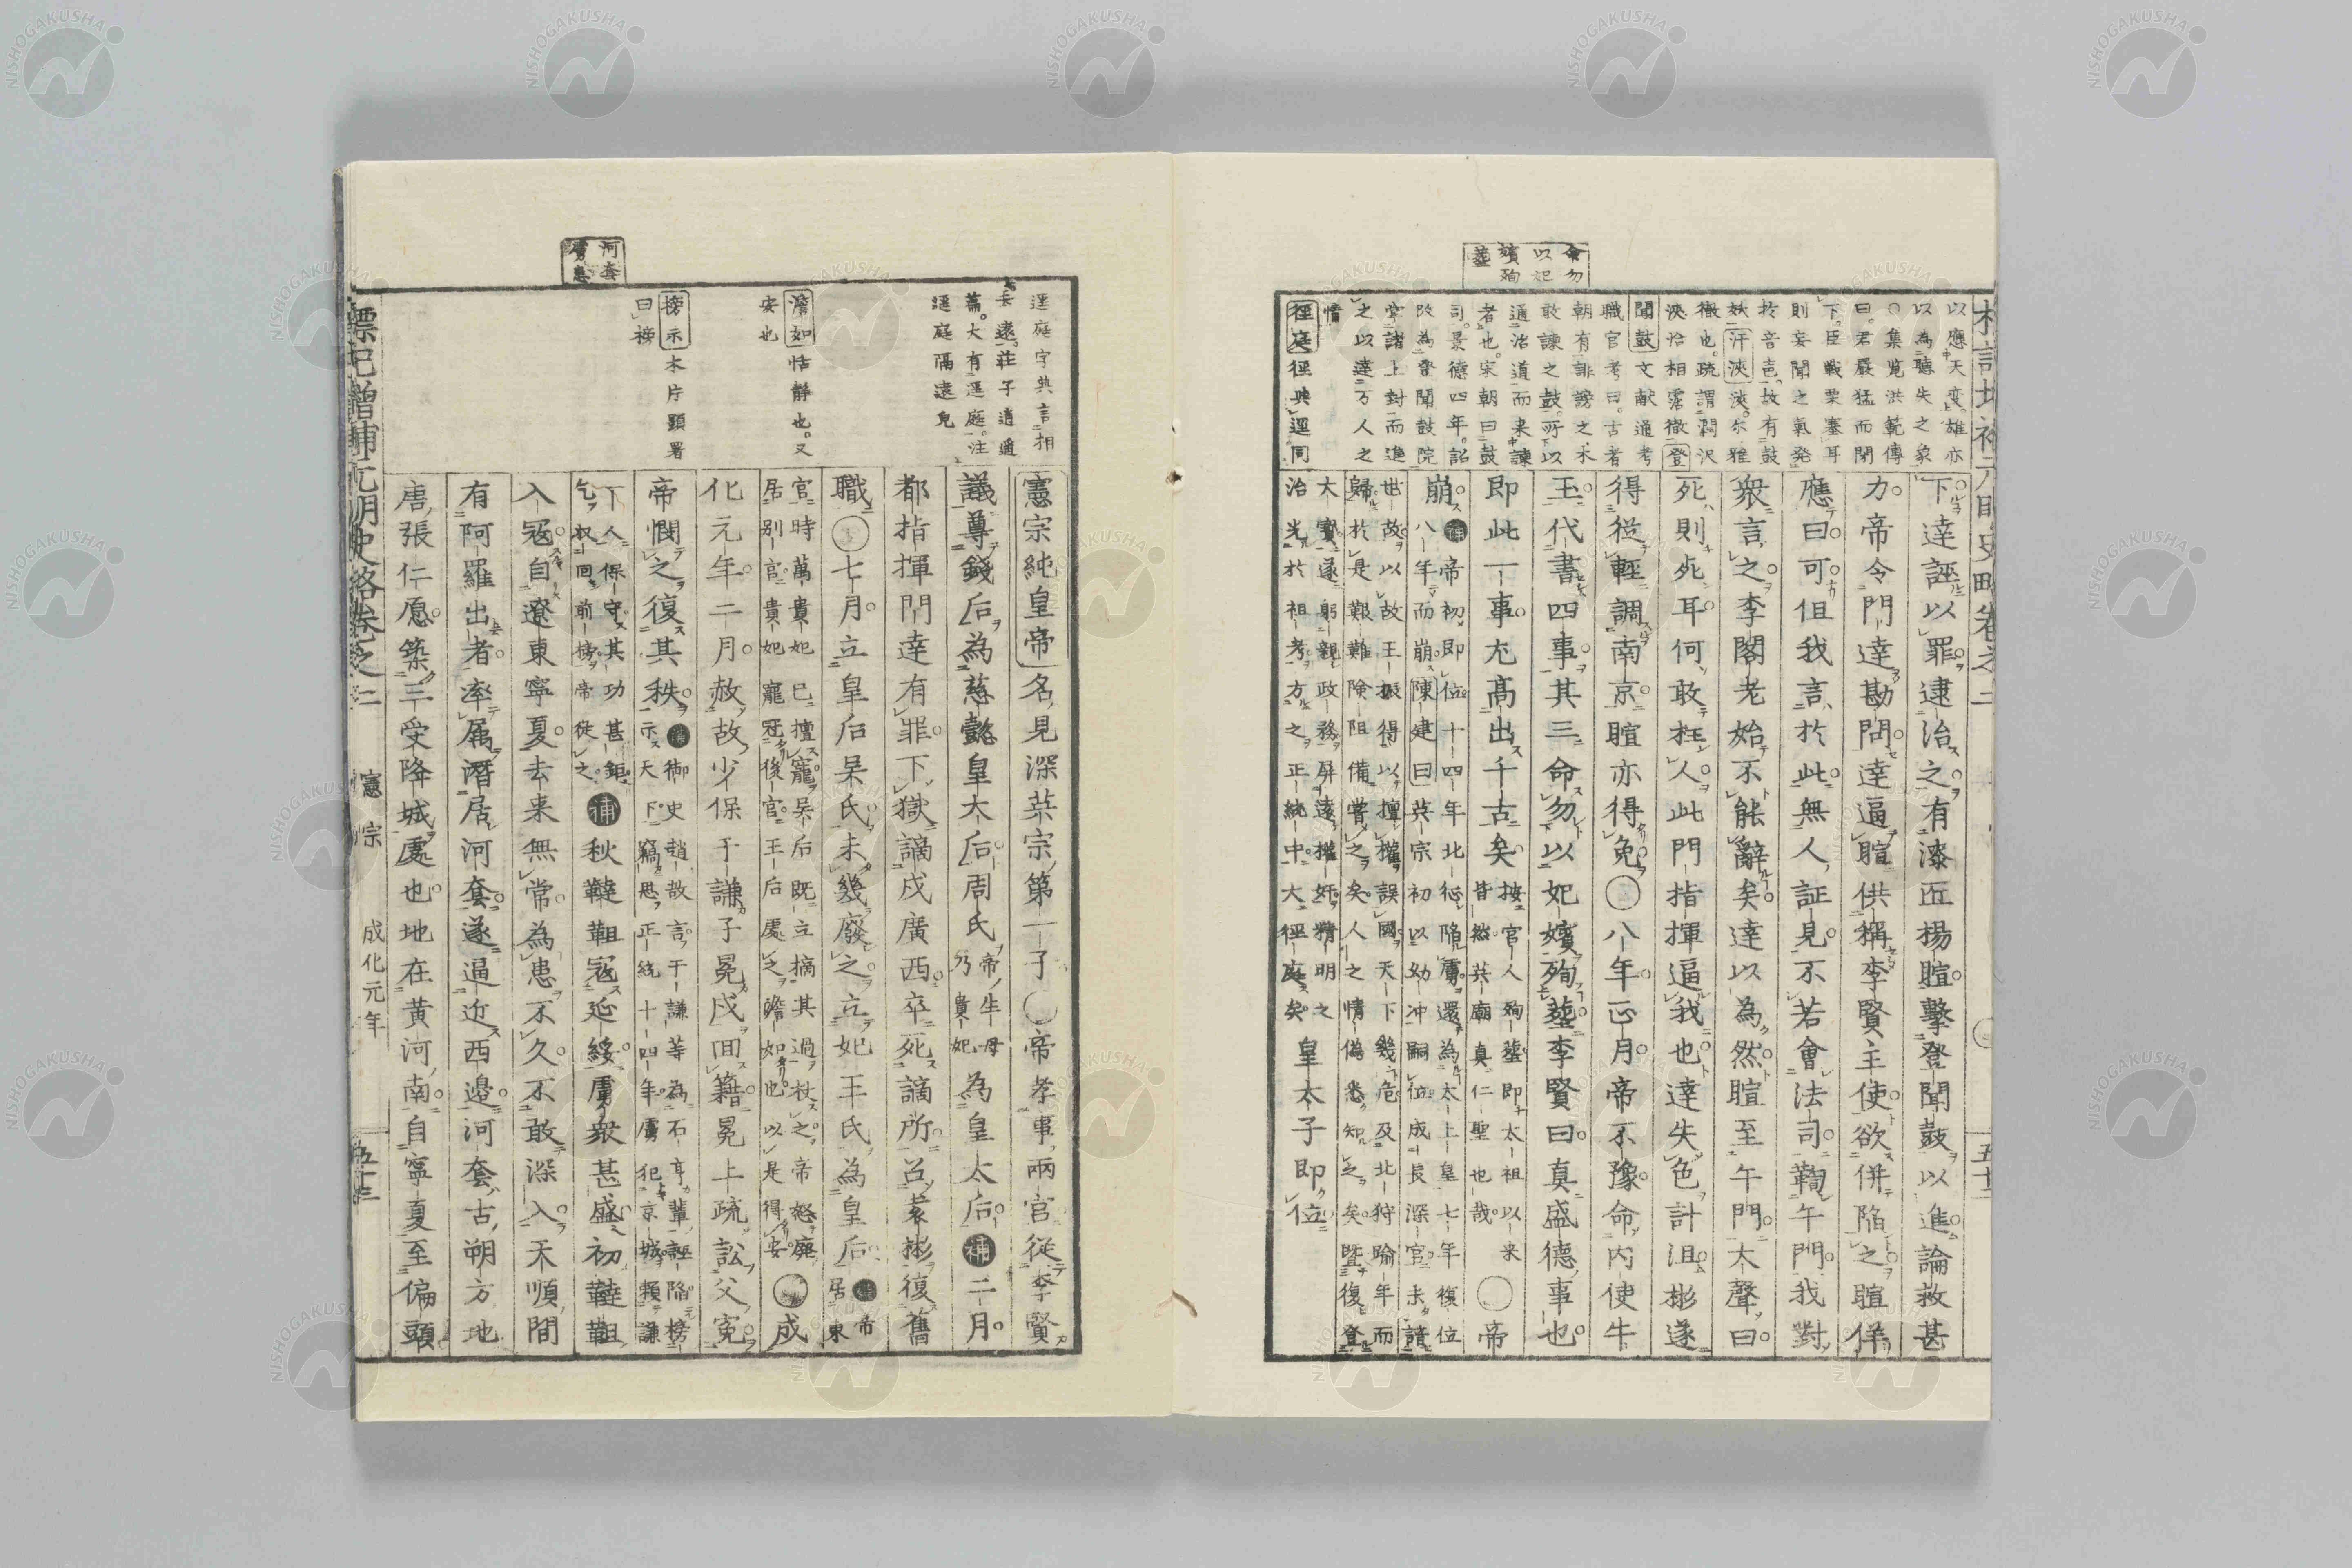 命勿
以妃
殯殉
葬
以應天変。雖亦
以為聽失之象
○集覧洪範傳
曰。君嚴猛而閉
下。臣戰栗塞耳
則妄聞之氣発
於音声。故有鼓
妖
汗浹 浹。尓雅
徹也。疏謂潤沢
浹洽相霑徹
登聞鼓 文献通考
職官考曰。古者
朝有誹謗之木
敢諫之鼓。所以
通治道而来諫
者也。宋朝曰鼓
司。景德四年。詔
改為登聞鼓院
掌諸上對而進
之以達万人之
情
徑庭 徑與逕同
下達誣以罪逮治之有漆匠楊暄擊登聞鼓以進論救甚
力帝令門達勘問達逼暄供稱李賢主使欲併陷之暄佯
應曰可但我言於此無人証見不若會法司鞫午門我對
衆言之李閣老始不能辭矣達以為然暄至午門大聲曰
死則死耳何敢枉人此門指揮逼我也達失色計沮彬遂
得從輕調南京暄亦得免○八年正月帝不豫命内使牛
玉代書四事其三命勿以妃嬪殉葬李賢曰真盛德事也
即此一事尤高出千古矣 按官人殉葬即太祖以来
昔然英廟真仁聖也哉 ○帝
崩 補 帝初即位十四年北征陷虜還為太上皇七年復位
八年而崩 陳建曰 英宗初以幼冲嗣位成長深宮未諳
世故以故王振得以擅權誤國天下幾危及北狩踰年而
歸於是艱難險阻備嘗之矣人之情偽悉知之矣曁復登
大寶遂躬親政務屏遠權奸精明之
治光於祖考方之正統中大徑庭矣 皇太子即位
河套
虜患
逕庭 字典言相
去遠。莊子逍遥
篇。大有逕庭。注
逕庭隔遠皃
澹如 恬静也。又
安也
榜示 木片顕署
曰榜
憲宗純皇帝名見深英宗第一子○帝孝事兩宮從李賢
議尊錢后為慈懿皇太后周氏 帝生母
乃貴妃 為皇太后 補 二月
都指揮門達有罪下獄謫戍廣西卒死謫所召袁彬復舊
職○七月立皇后呉氏未幾廢之立妃王氏為皇后 補 帝
居東
宮時萬貴妃已擅寵吳后既立摘其過杖之帝怒廢
居別宮貴妃寵冠後宮王后處之澹如也以是得安 ○成
化元年二月赦故少保于謙子冕戍回籍冕上疏訟父寃
帝憫之復其秩 補 御史趙敔言于謙等為石亨輩誣陷榜
示天下竊思正統十四年虜犯京城頼謙
一人保守其功甚鉅
乞収回前榜帝從之 補 秋韃靼寇延綏虜衆甚盛初韃靼
入寇自遼東寧夏去来無常為患不久不敢深入天順間
有阿羅出者率属潜居河套遂逼近西邉河套古朔方地
唐張仁愿築三受降城處也地在黄河南自寧夏至偏頭
標記增補元明史略卷之二 憲宗 成化元年 五十三